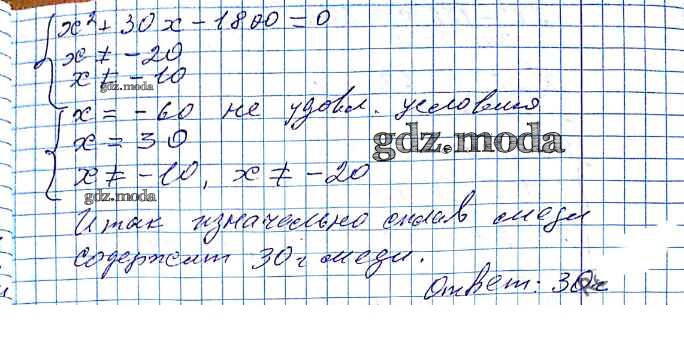 x² + 30x - 1800 = 0
x ≠ -20
x ≠ -10
gdz.moda
x = -60 не удовл. условия
x = 30
gdz.moda
x ≠ -10, x ≠ -20
gdz.moda
Итак изначально сплав меди
содержит 30 г меди.
Ответ: 30г